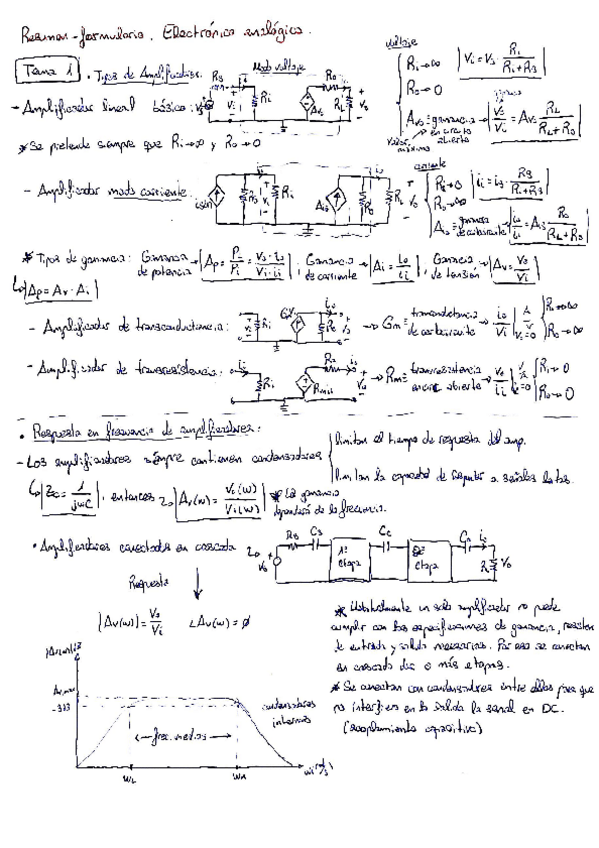 Resumen-formulario. Electrónica analógica.
Tema 1 • Tipos de Amplificadores. Modo voltaje
- Amplificador lineal básico:
* Se pretende siempre que Ri→∞ y Ro→0
voltaje
Ri→∞
Ro→0
Avo = ganancia en circuito abierto
valor máximo
- Amplificador modo corriente
corriente
Ri→0
Ro→∞
Ais = ganancia de cortocircuito
* Tipos de ganancia: Ganancia de potencia → Ap = Po/Pi = vo·io/vi·ii ; Ganancia de corriente → Ai = io/ii ; Ganancia de tensión → Av = vo/vi
↳ Ap = Av · Ai
- Amplificador de transconductancia: → Gm = transconductancia de cortocircuito
Ri→∞
Ro→∞
- Amplificador de transresistencia: → Rm = transresistencia en circ. abierto
Ri→0
Ro→0
• Respuesta en frecuencia de amplificadores:
- Los amplificadores siempre contienen condensadores
limitan el tiempo de respuesta del amp.
limitan la capacidad de seguir a señales
↳ Zc = 1/jωC , entonces Av(ω) = Vo(ω)/Vi(ω) * La ganancia dependerá de la frecuencia.
• Amplificadores conectados en cascada
Rs Cs 1ª etapa Cc 2ª etapa io Vo
Respuesta
|Av(ω)| = Vo/Vi ∠Av(ω) = ø
* Habitualmente un solo amplificador no puede
cumplir con las especificaciones de ganancia, resisten.
de entrada y salida necesarias. Por eso se conectan
en cascada dos o más etapas.
* Se conectan con condensadores entre ellos para que
no interfiera en la salida la señal en DC.
(acoplamiento capacitivo)
condensadores internos
← frec. medias →
ωL ωH